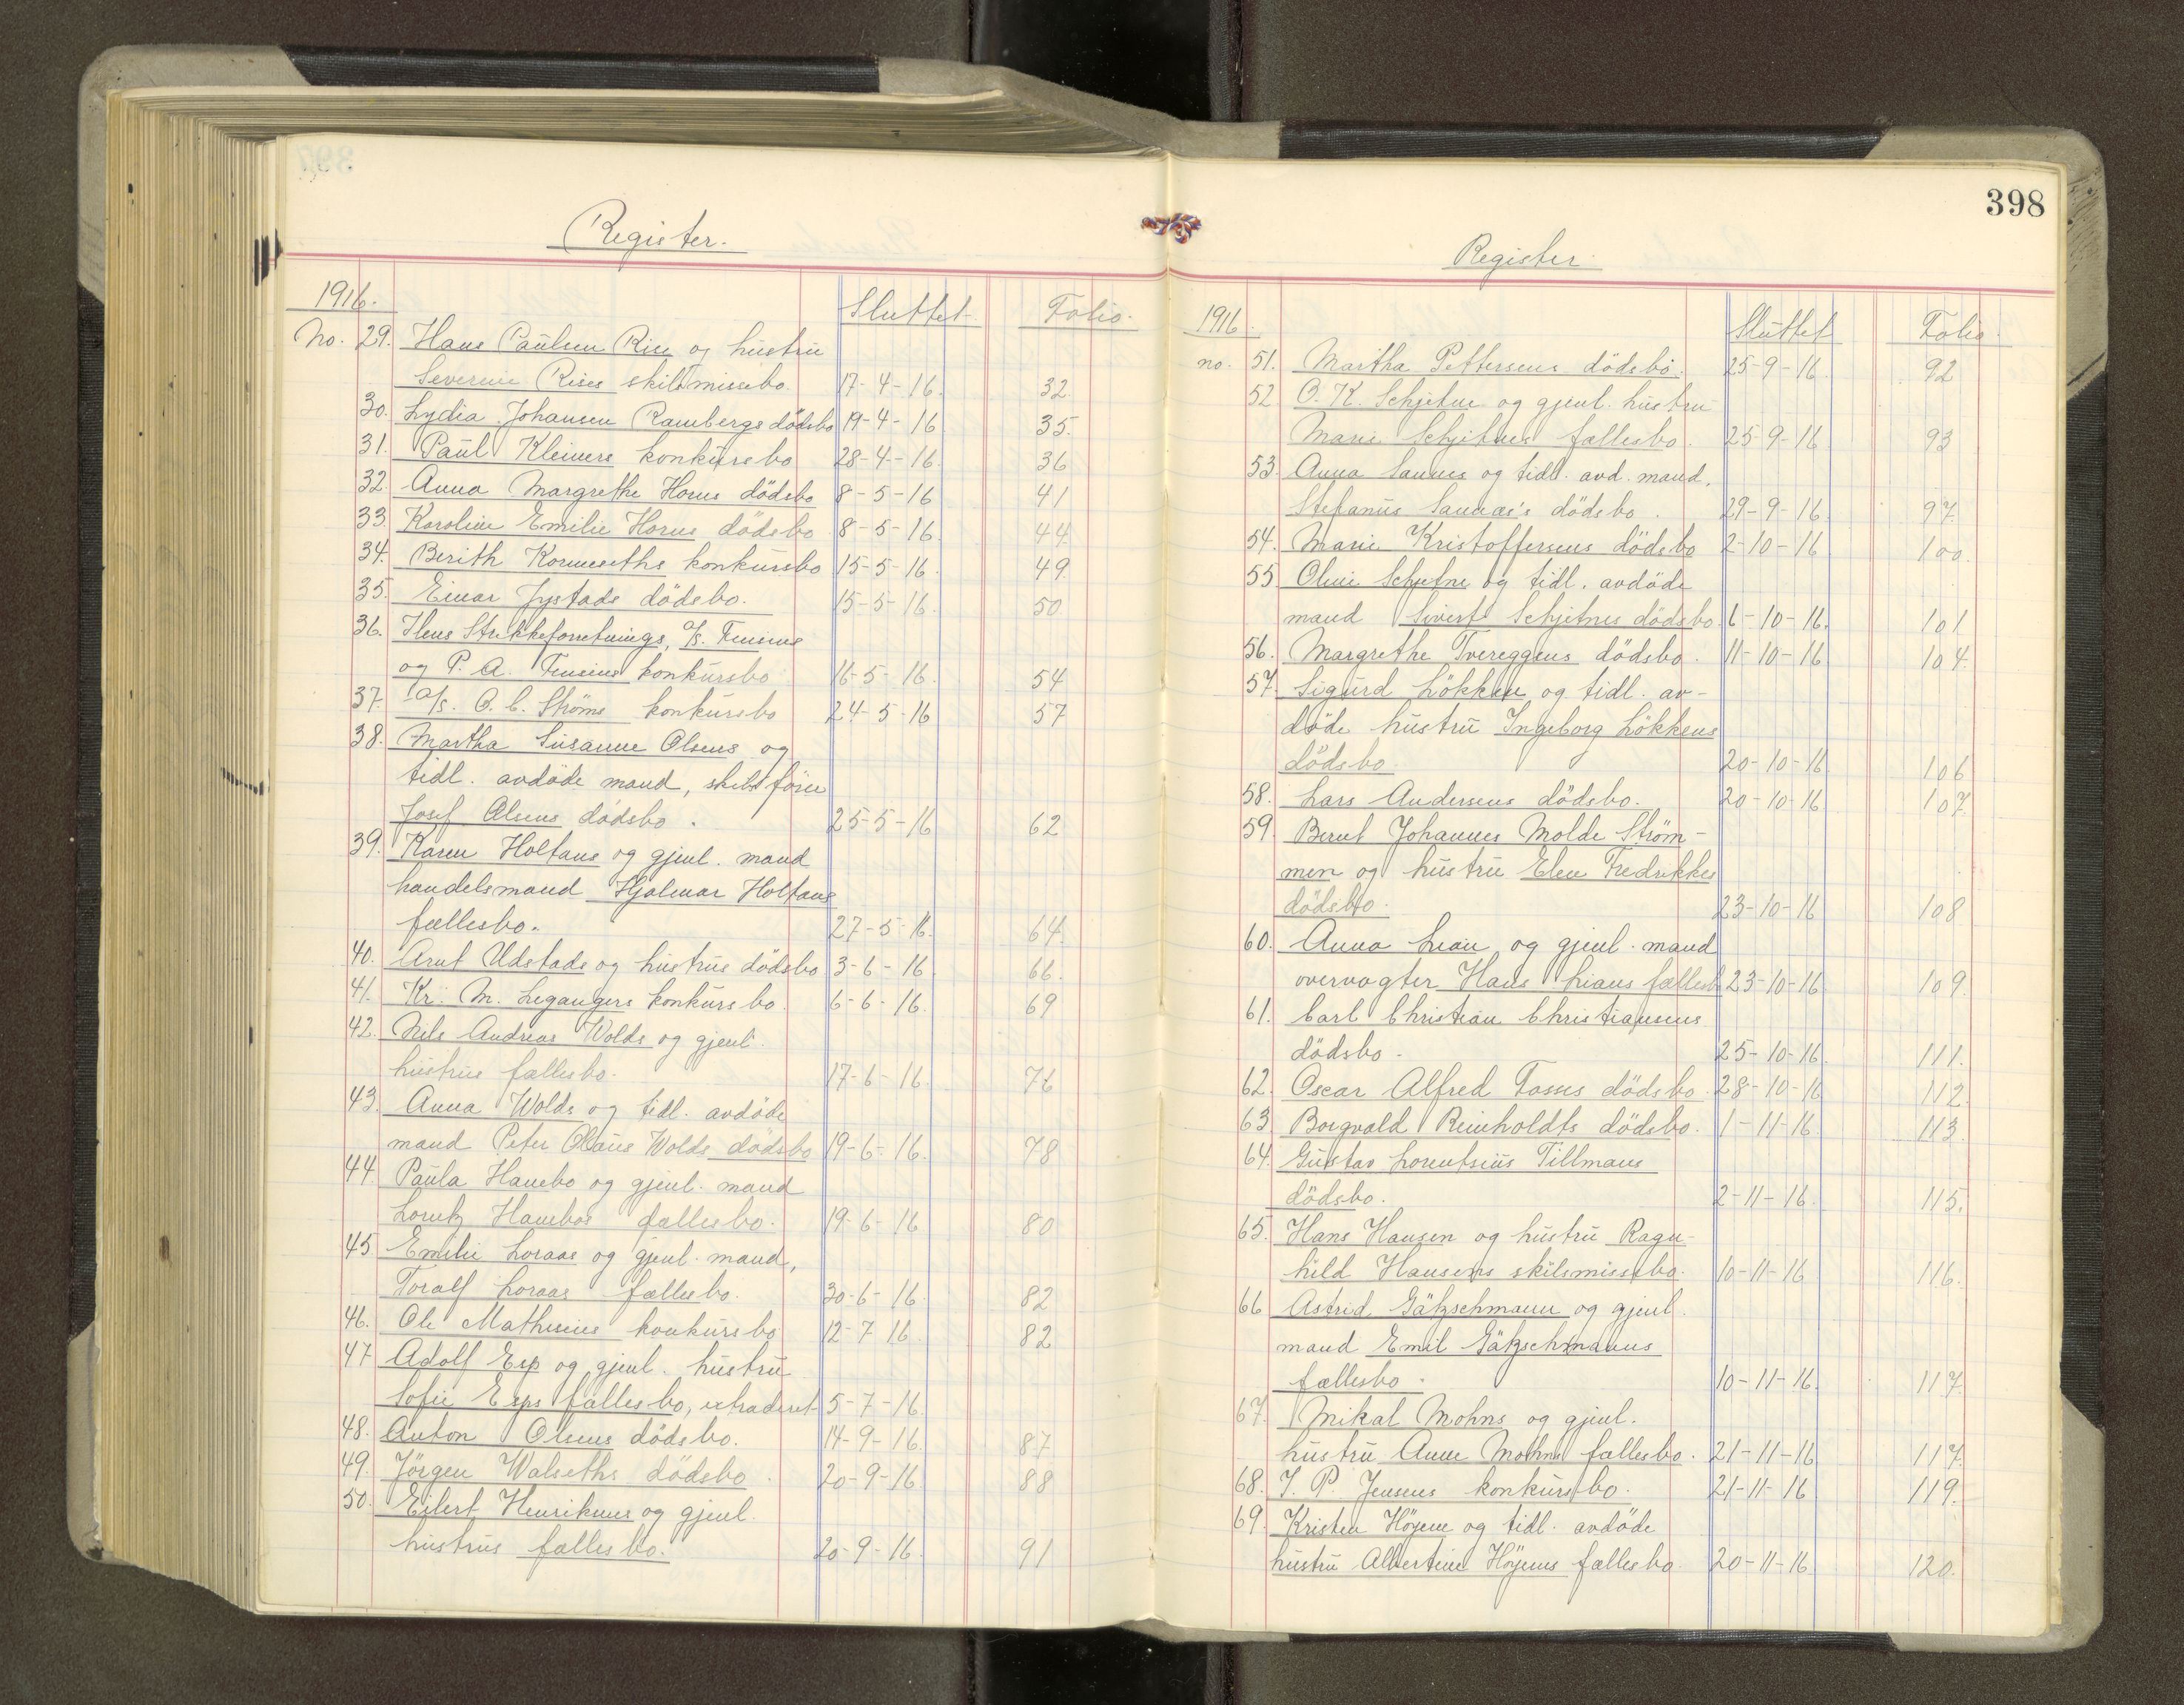 Register.
1916.
Sluttet
Folio.
No. 29. Hans Paulsen Rise og hustru
Severine Rises skilsmissebo. 17-4-16. 32
30. Lydia Johansen Rambergs dödsbo 19-4-16 35.
31. Paul Kleivers konkursbo 28-4-16. 36
32. Anna Margrethe Horns dödsbo 8-5-16 41
33. Karoline Emilie Horns dödsbo 8-5-16. 44
34. Berith Kornseths konkursbo 15-5-16. 49
35. Einar Jystads dödsbo. 15-5-16. 50
36. Strikkeforretnings, a/s.
og P. A. konkursbo 16-5-16. 54
37. a/s. O. C. Ströms konkursbo 24-5-16 57
38. Martha Susanne Olsens og
tidl. avdöde mand, skibsförer
Josef Olsens dödsbo. 25-5-16 62
39. Karen Holtans og gjenl. mand
handelsmand Hjalmar Holtans
fællesbo. 27-5-16. 64.
40. Arnt Udstads og hustrus dödsbo 3-6-16 66.
41. Kr. M. Legangers konkursbo. 6-6-16. 69
42. Nils Andreas Wolds og gjenl.
hustrus fællesbo. 17-6-16. 76
43. Anna Wolds og tidl. avdöde
mand Peter Olaus Wolds dödsbo 19-6-16. 78
44. Paula Hanebo og gjenl. mand
Lorntz Hanebos fællesbo. 19-6-16 80
45 Emilie Loraas og gjenl. mand,
Toralf Loraas fællesbo. 30-6-16. 82
46. Ole Mathisens konkursbo 12-7-16. 82
47 Adolf Esp og gjenl. hustru
Sofie Esps fællesbo, extraderet 5-7-16.
48. Anton Olsens dödsbo. 14-9-16. 87
49. Jörgen Walseths dödsbo. 20-9-16. 88
50. Eilert Henriksens og gjenl.
hustrus fællesbo. 20-9-16. 91
398
Register
1916.
Sluttet
Folio.
no. 51. Martha Pettersens dödsbo. 25-9-16. 92
52 O. K. Schjetne og gjenl. hustru
Marie Schjetnes fællesbo. 25-9-16. 93
53. Anna Sannes og tidl. avd. mand,
Stefanus Sannæs's dödsbo. 29-9-16. 97.
54. Marie Kristoffersens dödsbo 2-10-16 100.
55. Oline Schjetne og tidl. avdöde
mand Sivert Schjetnes dödsbo. 6-10-16. 101
56. Margrethe Tvereggens dödsbo. 11-10-16 104.
57. Sigurd Lökken og tidl. av-
döde hustru Ingeborg Lökkens
dödsbo. 20-10-16 106
58. Lars Andersens dödsbo. 20-10-16. 107.
59. Bernt Johannes Molde Ström-
men og hustru Elen Fredrikkes
dödsbo. 23-10-16 108
60. Anna Lian, og gjenl. mand
overvogter Hans Lians fællesb 23-10-16 109.
61. Carl Christian Christiansens
dödsbo. 25-10-16. 111.
62. Oscar Alfred Fosses dödsbo. 28-10-16 112.
63 Borgvald Reinholdts dödsbo. 1-11-16. 113.
64. Gustav Lorentsius Tillmans
dödsbo. 2-11-16. 115.
65. Hans Hansen og hustru Ragn-
hild Hansens skilsmissebo. 10-11-16 116.
66 Astrid Gätzschmann og gjenl.
mand Emil Gätzschmanns
fællesbo. 10-11-16. 117.
67. Mikal Mohns og gjenl.
hustru Anne Mohns fællesbo. 21-11-16 117.
68. J. P. Jensens konkursbo. 21-11-16 119.
69. Kristen Höyem og tidl. avdöde
hustru Albertine Höyems fællesbo. 20-11-16. 120.